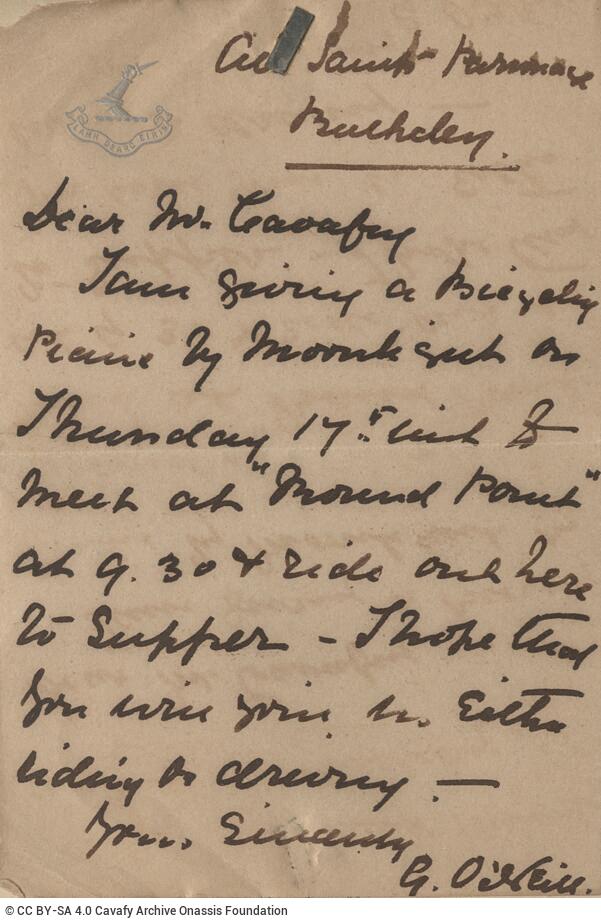 All Saints Parsonage
Bulkeley.
LAMH DEARG EIRIN
Dear Mr. Cavafy
I am giving a Bicycling
Picnic by Moonlight on
Thursday 17th inst to
meet at "Mound Point"
at 9.30 & ride out here
to Supper - I hope that
you will join us Either
riding or driving. —
Yours Sincerely
G. O'Neill.
© CC BY-SA 4.0 Cavafy Archive Onassis Foundation